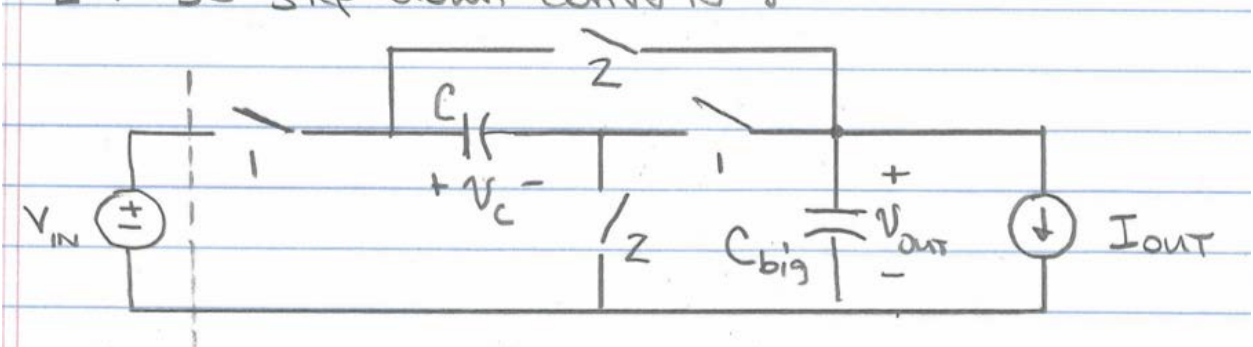 2
C
1
+ V_C -
1
2
V_IN
+
-
C_big
+
V_OUT
-
I_OUT